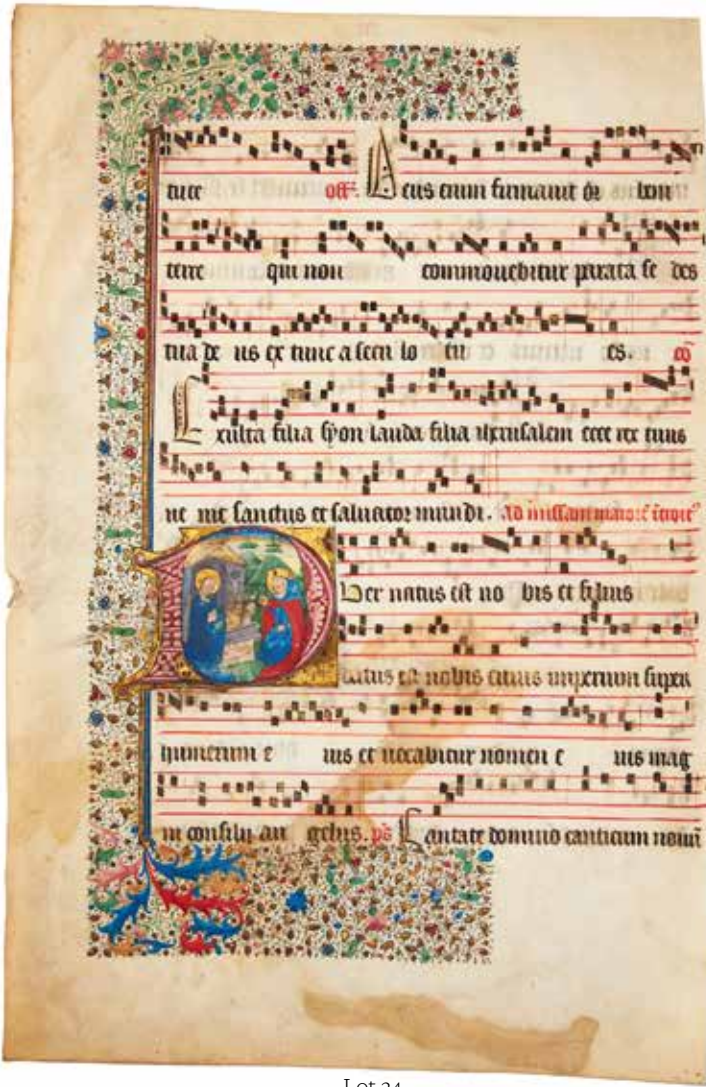 tute off. Deus enim firmavit or bem
terre qui non commovebitur parata se des
tua de us ex tunc a secu lo tu es. cō
Exulta filia syon lauda filia iherusalem ecce rex tuus
ve nit sanctus et salvator mundi. Ad missam maiorē
Puer natus est no bis et filius
datus est nobis cuius imperium super
humerum e ius et vocabitur nomen e ius mag
ni consilij an gelus. ps Cantate domino canticum novū
Lot 24